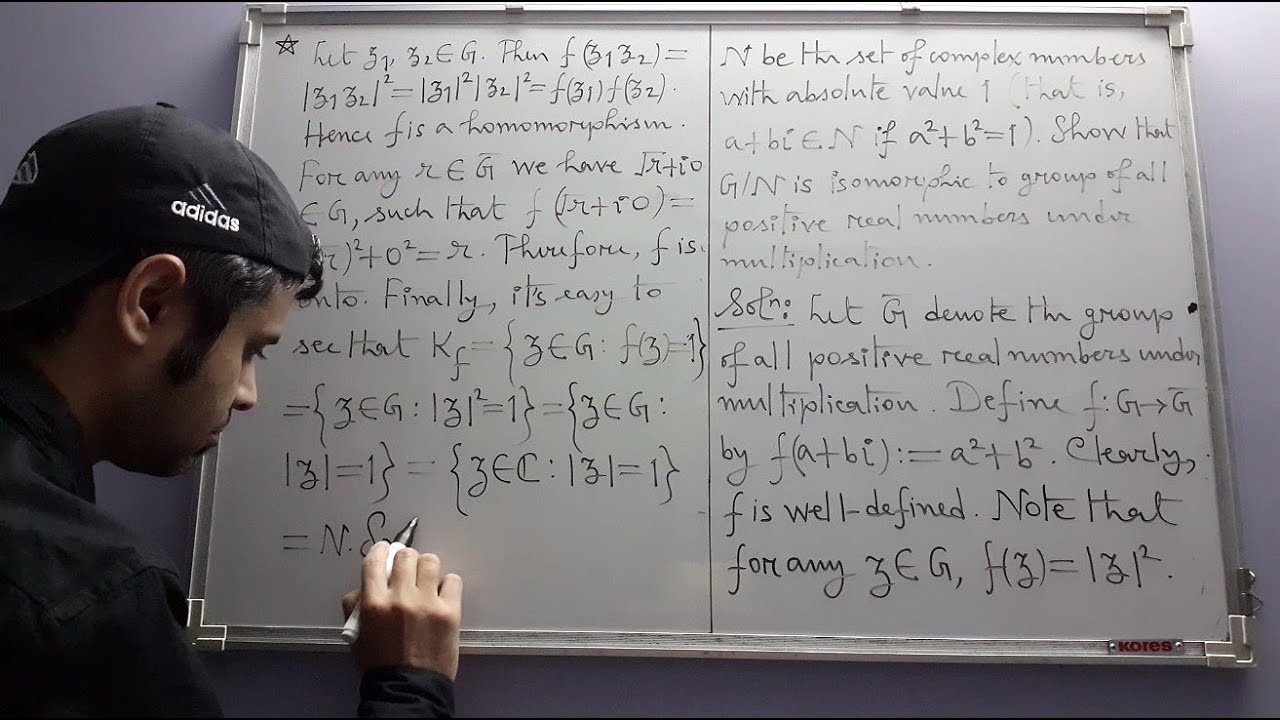 adidas
☆ Let z₁, z₂ ∈ G. Then f(z₁z₂) =
|z₁z₂|² = |z₁|²|z₂|² = f(z₁) f(z₂).
Hence f is a homomorphism.
For any r ∈ G̅ we have √r+i0
∈ G, such that f(√r+i0) =
r)²+0² = r. Therefore, f is
onto. Finally, it's easy to
see that K_f = {z ∈ G : f(z) = 1}
= {z ∈ G : |z|² = 1} = {z ∈ G :
|z| = 1} = {z ∈ ℂ : |z| = 1}
= N. S
N be the set of complex numbers
with absolute value 1 (that is,
a+bi ∈ N if a²+b²=1). Show that
G/N is isomorphic to group of all
positive real numbers under
multiplication.
Soln: Let G̅ denote the group
of all positive real numbers under
multiplication. Define f: G→G̅
by f(a+bi) := a²+b². Clearly,
f is well-defined. Note that
for any z ∈ G, f(z) = |z|².
KORES